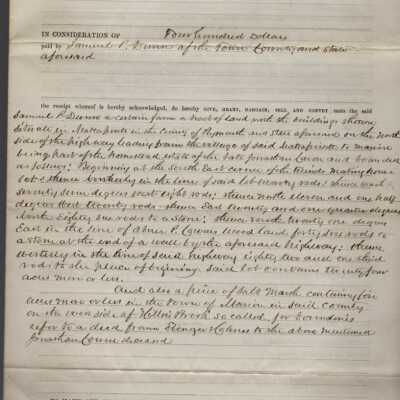 IN CONSIDERATION OF Four hundred Dollars
paid by Samuel P. Dunn of the Town County and State
aforesaid
the receipt whereof is hereby acknowledged, do hereby GIVE, GRANT, BARGAIN, SELL, AND CONVEY unto the said
Samuel P. Dunn a certain farm or lot of land with the buildings thereon
situate in Mattapoisett in the County of Plymouth and state aforesaid on the North
side of the highway leading from the village of said Mattapoisett to Marion
being part of the homestead estate of the late Jonathan and bounded
as follows: Beginning at the South East corner of the
lot & thence Northerly in the line of said lot rods; thence
seventy seven degrees west eight rods; thence North eleven and one half
degrees West twenty rods thence East twenty and one quarter degrees
North Eighty one rods to a stone; thence South twenty one degrees
East in the line of Abner P. wood land forty six rods to
a stone at the end of a wall by the aforesaid highway; thence
westerly in the line of said highway eighty two and one third
rods to the place of beginning. said lot contains twenty four
acres more or less.
And also a piece of Salt Marsh containing
acres more or less in the town of Marion in said County
on the side of Brook so called for boundaries
refer to a deed from Ebenezer Holmes to the above mentioned
Jonathan deceased